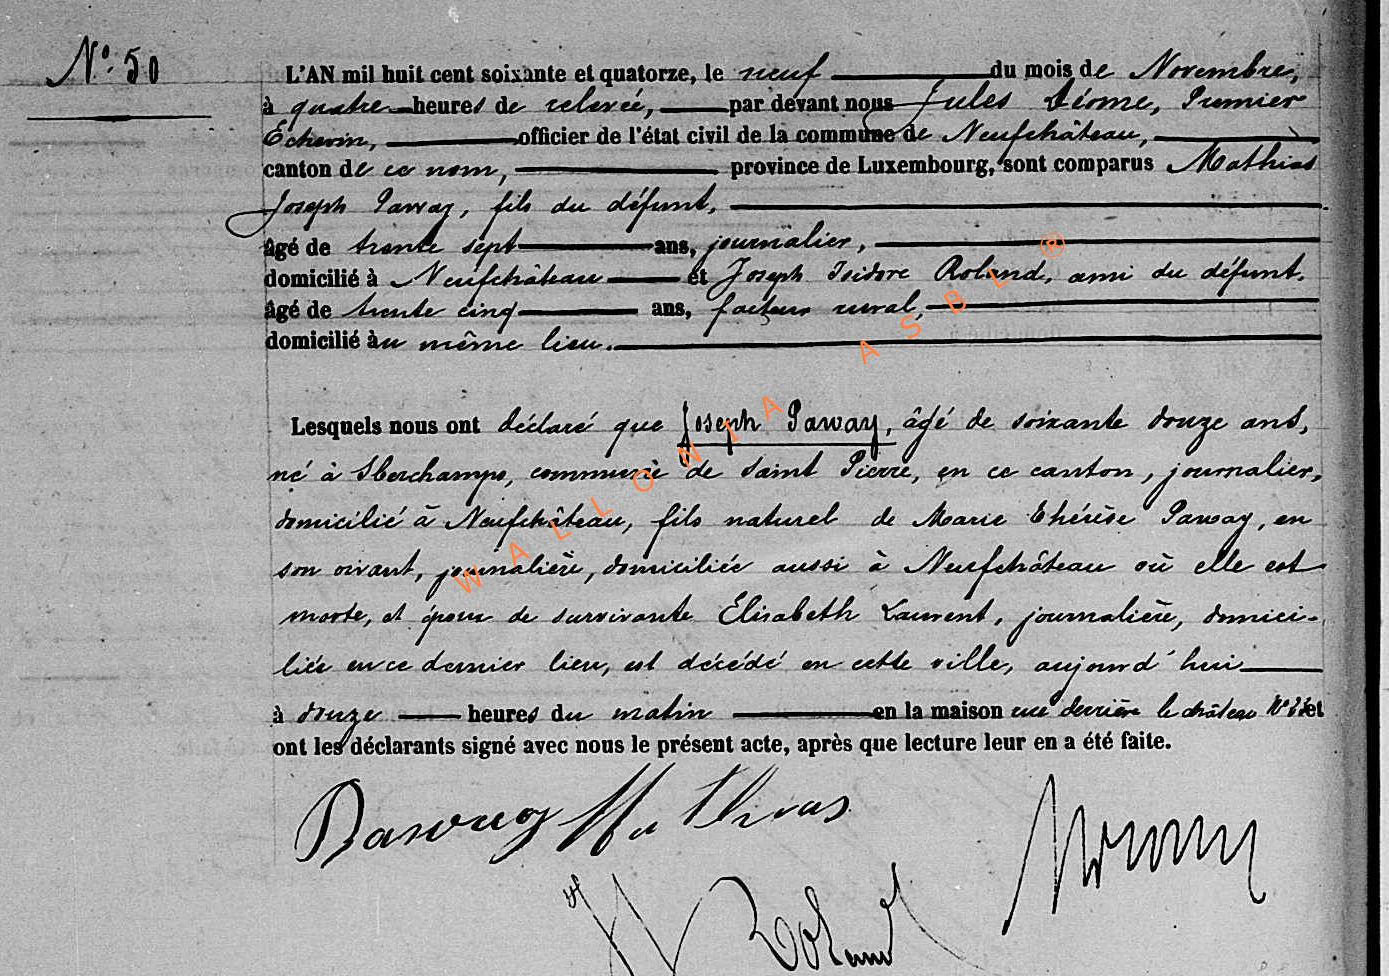 N° 50
L'AN mil huit cent soixante et quatorze, le neuf du mois de Novembre,
à quatre heures de relevée, par devant nous Jules Déome, Premier
Echevin, officier de l'état civil de la commune de Neufchâteau,
canton de ce nom, province de Luxembourg, sont comparus Mathias
Joseph Paway, fils du défunt,
âgé de trente sept ans, journalier,
domicilié à Neufchâteau et Joseph Isidore Roland, ami du défunt,
âgé de trente cinq ans, facteur rural,
domicilié au même lieu.
Lesquels nous ont déclaré que Joseph Paway, âgé de soixante douze ans,
né à Sberchamps, commune de Saint Pierre, en ce canton, journalier,
domicilié à Neufchâteau, fils naturel de Marie Thérèse Paway, en
son vivant, journalière, domiciliée aussi à Neufchâteau où elle est
morte, et époux de survivante Elisabeth Laurent, journalière, domici-
liée en ce dernier lieu, est décédé en cette ville, aujourd'hui
à douze heures du matin en la maison rue derrière le château N° et
ont les déclarants signé avec nous le présent acte, après que lecture leur en a été faite.
Paway Mathias
Roland
WALLONIA ASBL ®